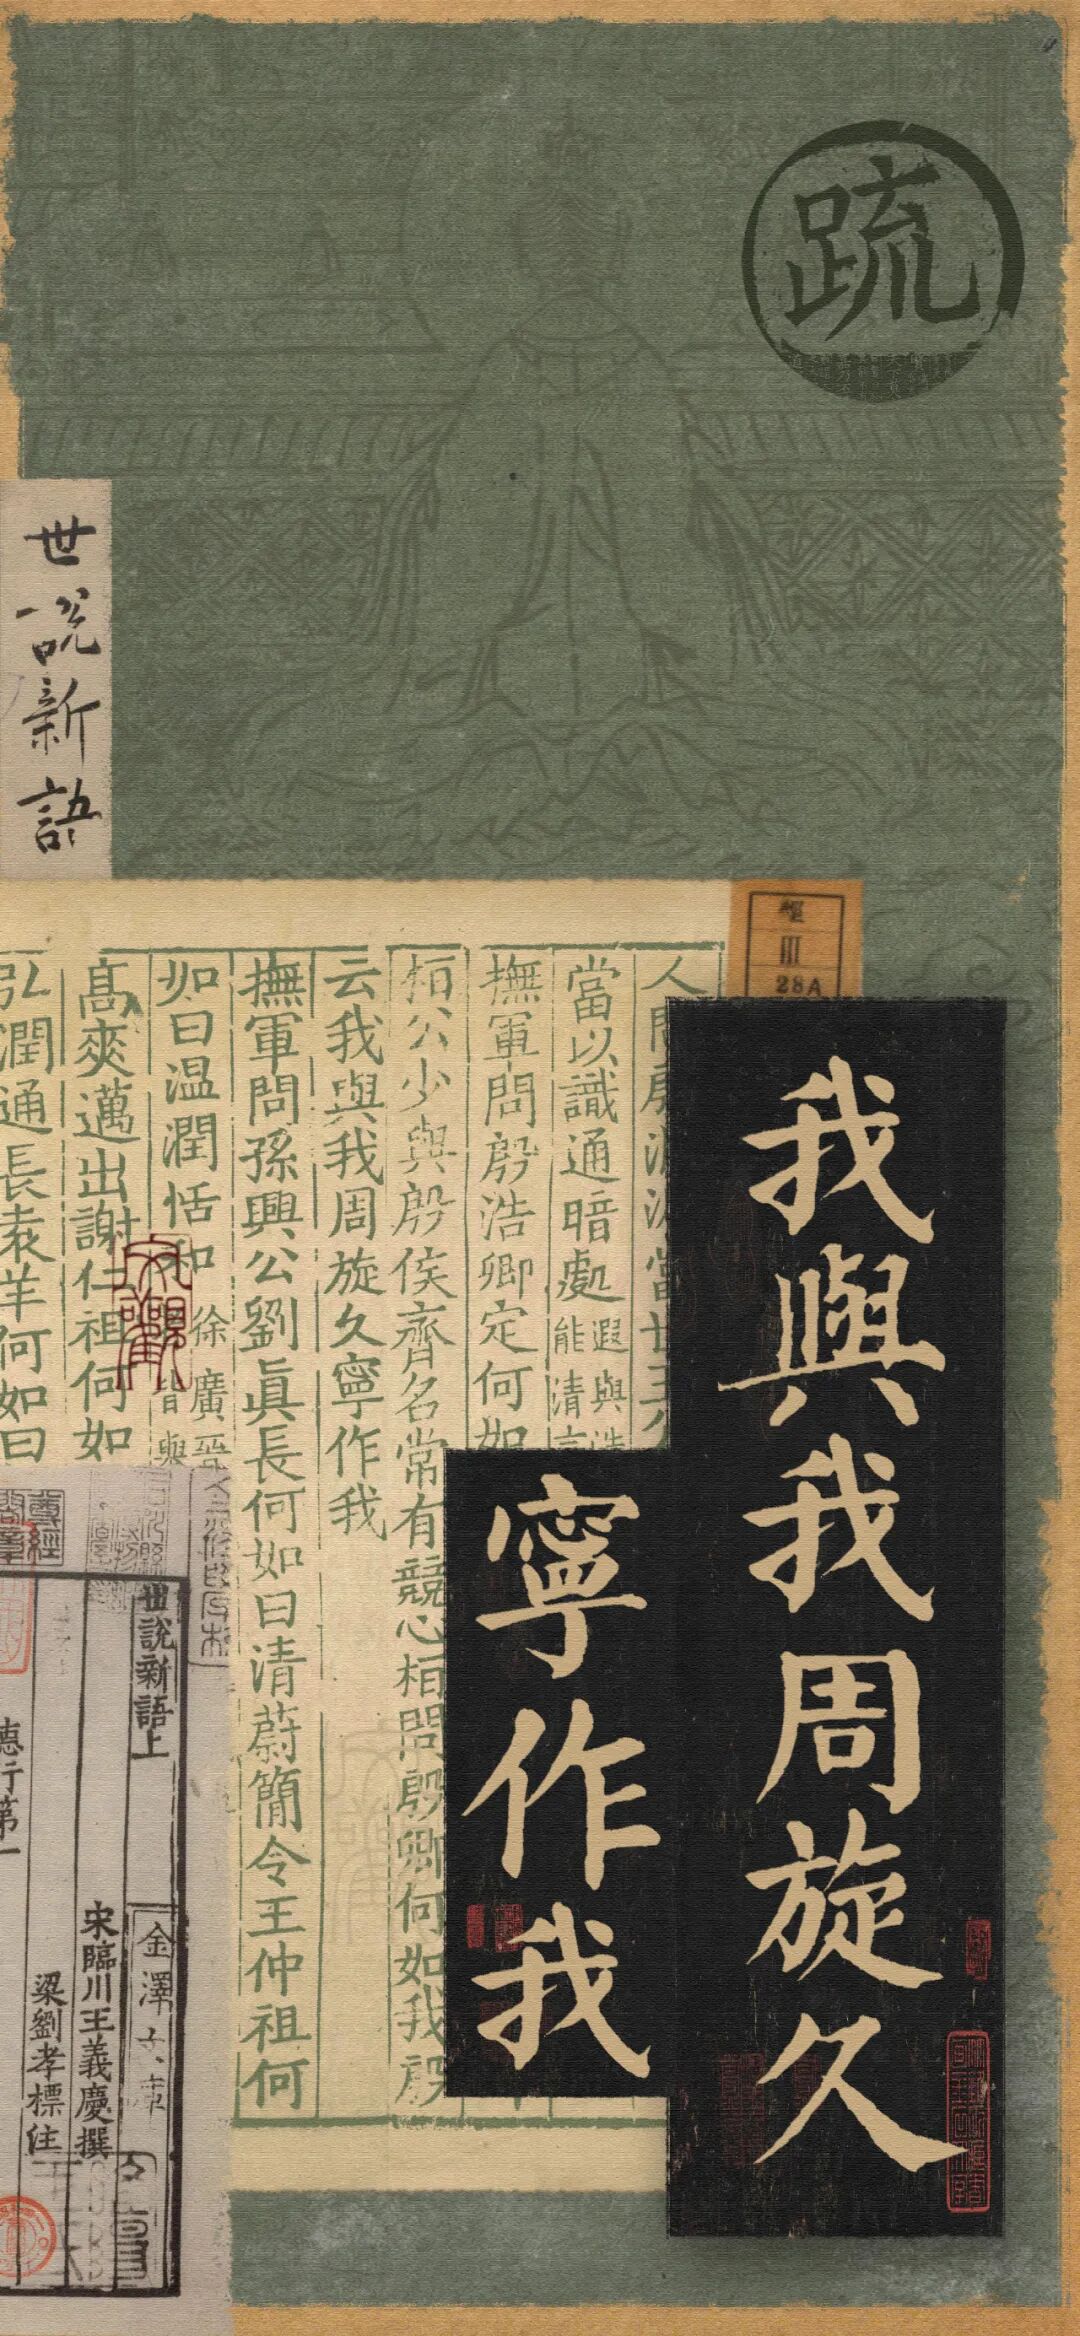 疏
世說新語
28A
我與我周旋久
寧作我
當以識通暗處
遐與浩
能清言
撫軍問殷浩卿定何如
桓公少與殷侯齊名常有競心桓問殷卿何如我殷
云我與我周旋久寧作我
撫軍問孫興公劉真長何如曰清蔚簡令王仲祖何
如曰温潤恬和
徐廣晉
高爽邁出謝仁祖何如
弘潤通長袁羊何如曰
世說新語上
宋臨川王義慶撰
梁劉孝標注
德行第一
金澤文庫